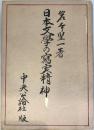 片岡良一著
日本文學の寫実精神
中央公論社版